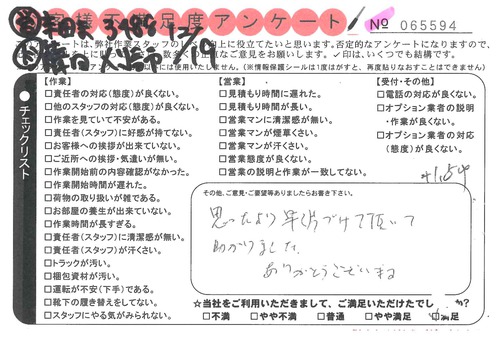 お客様満足度アンケート
No 065594
このアンケートは、弊社作業スタッフのレベル向上に役立てたいと思います。否定的なアンケートになりますので、
ご意見をお願いします。✓印は、いくつでも結構です。
には使用いたしません。(※情報保護シールは1度がはすと、再度貼りなおすことはできません)
チェックリスト
【作業】
□責任者の対応(態度)が良くない。
□他のスタッフの対応(態度)が良くない。
□作業を見ていて不安がある。
□責任者(スタッフ)に好感が持てない。
□お客様への挨拶が出来ていない。
□ご近所への挨拶・気遣いが無い。
□作業開始前の内容確認がなかった。
□作業開始時間が遅れた。
□荷物の取り扱いが雑である。
□お部屋の養生が出来ていない。
□作業時間が長すぎる。
□責任者(スタッフ)に清潔感が無い。
□責任者(スタッフ)が汗くさい。
□トラックが汚い。
□梱包資材が汚い。
□運転が不安(下手)である。
□靴下の履き替えをしてない。
□スタッフにやる気がみられない。
【営業】
□見積もり時間に遅れた。
□見積もり時間が長い。
□営業マンに清潔感が無い。
□営業マンが煙草くさい。
□営業マンが汗くさい。
□営業態度が良くない。
□営業の説明と作業が一致してない。
【受付・その他】
□電話の対応が良くない。
□オプション業者の説明
・作業が良くない。
□オプション業者の対応
(態度)が良くない。
その他、ご意見・ご要望等ありましたらお書き下さい。
思ったより早く片づけて頂いて
助かりました
ありがとうございます
☆当社をご利用いただきまして、ご満足いただけたでしょうか?
□不満 □やや不満 □普通 □やや満足 満足